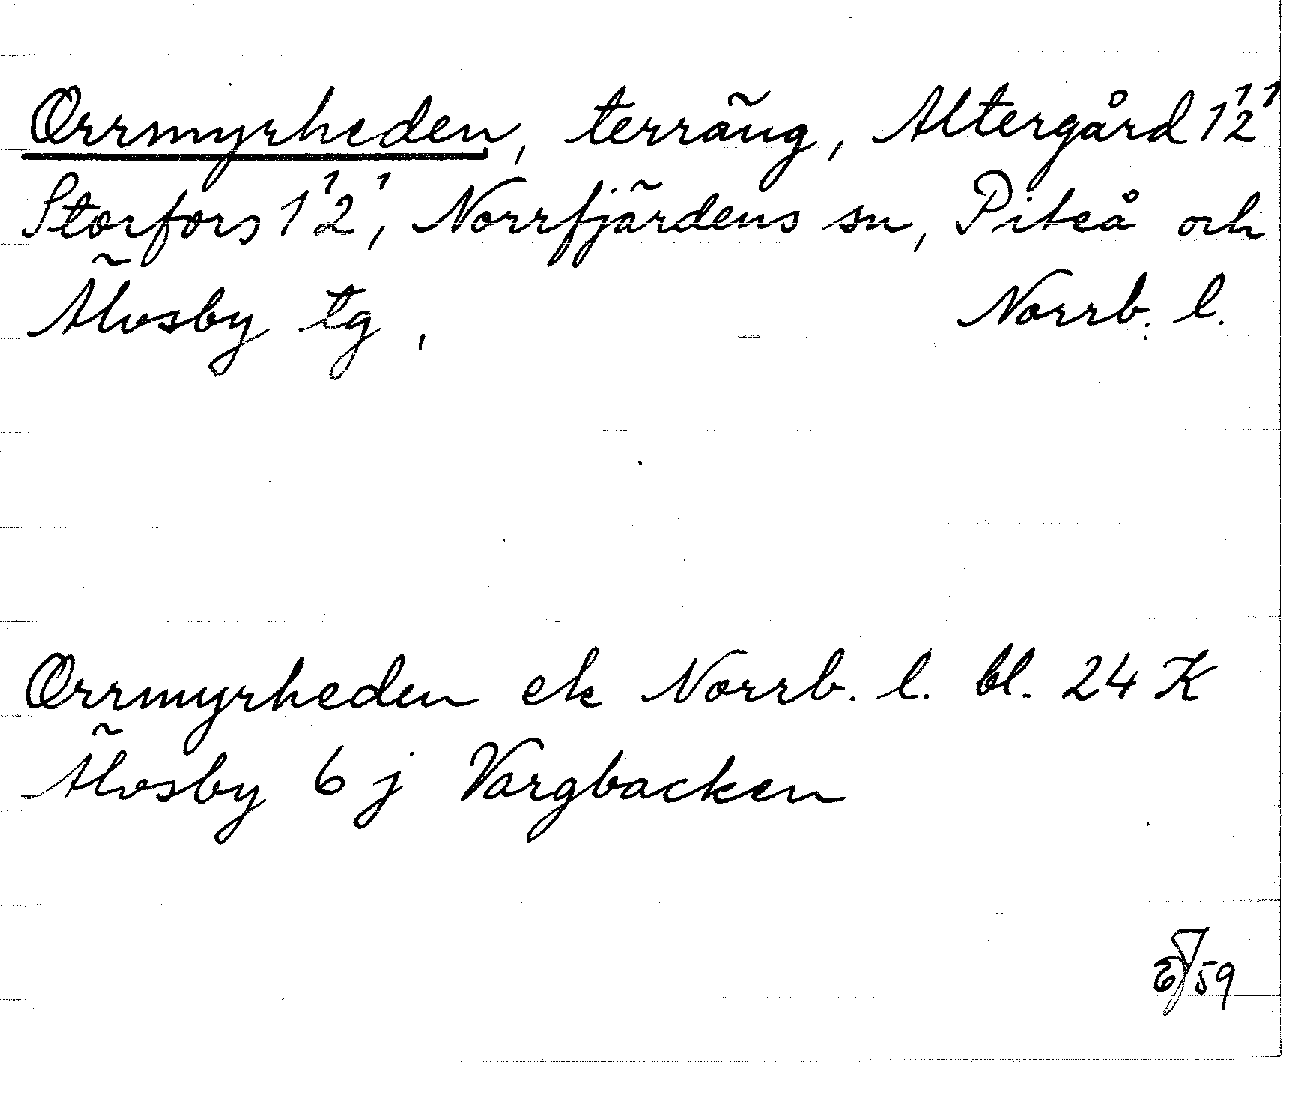 Orrmyrheden, terräng, Altergård 1¹2¹
Storfors 1¹2¹, Norrfjärdens sn, Piteå och
Älvsby tg, Norrb. l.
Orrmyrheden ek Norrb. l. bl. 24 K
Älvsby 6 j Vargbacken
59